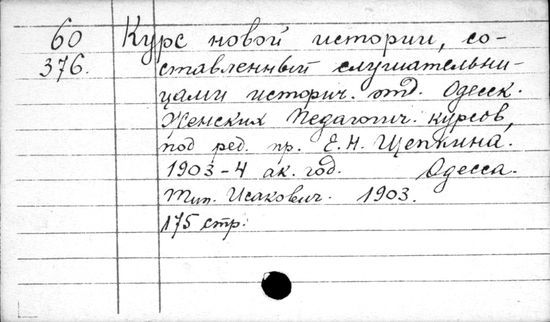 60 Курс новой истории, со-
376. ставленный слушательни-
цами историч. отд. Одесск.
Женских Педагогич. курсов,
под ред. пр. Е. Н. Щепкина.
1903-4 ак. год. Одесса.
Тип. Исакович. 1903.
175 стр.